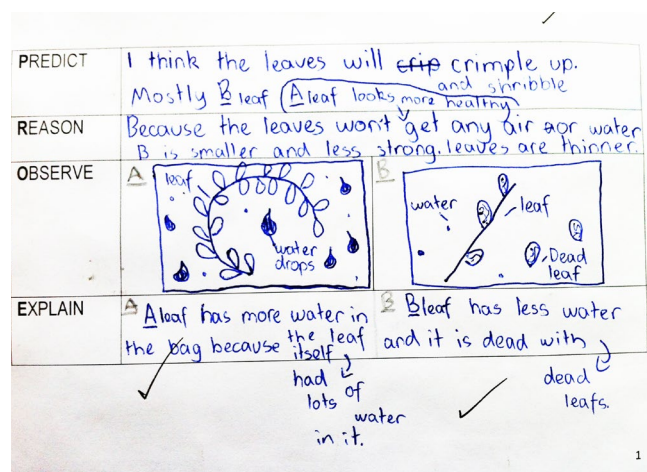 PREDICT
I think the leaves will crip crimple up.
and shribble
Mostly B leaf (A leaf looks more healthy)
REASON
Because the leaves won't get any air nor water
B is smaller and less strong. leaves are thinner.
OBSERVE
A
leaf
water
drops
B
water
leaf
Dead
leaf
EXPLAIN
A
A leaf has more water in
the bag because the leaf
itself
had
lots of
water
in it.
B
B leaf has less water
and it is dead with
dead
leafs.
1